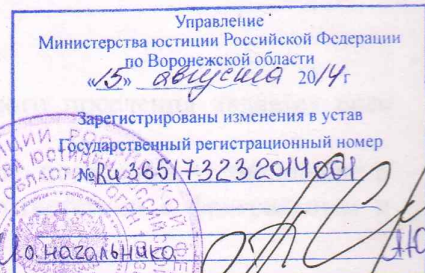 Управление
Министерства юстиции Российской Федерации
по Воронежской области
«15» августа 2014г
Зарегистрированы изменения в устав
Государственный регистрационный номер
№Ru365173232014001
И.о. начальника